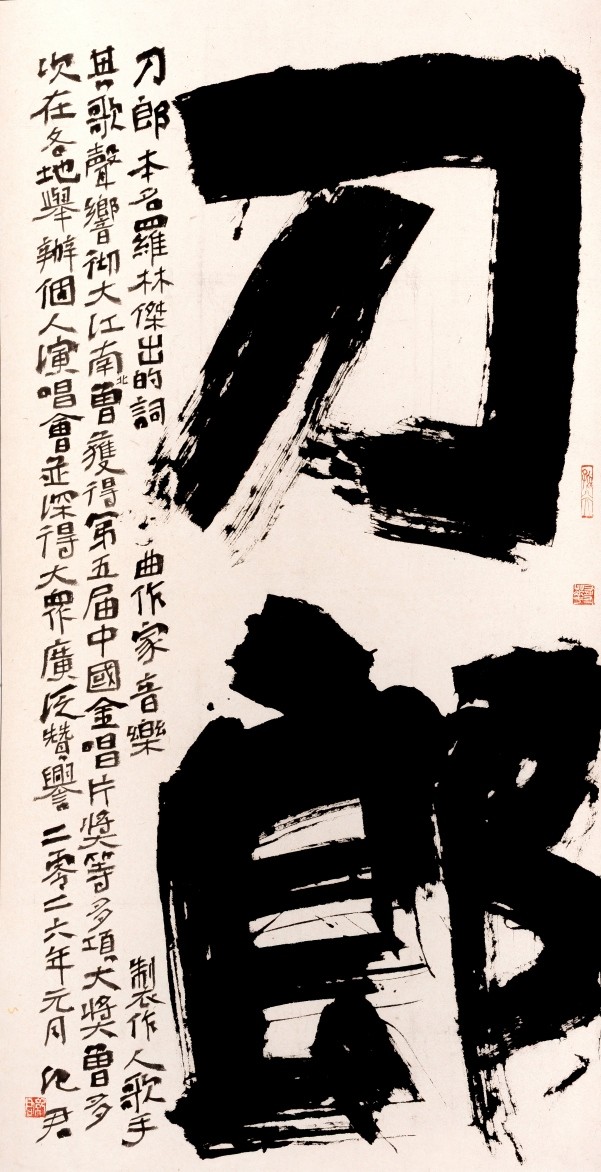 刀郎
刀郎本名羅林傑出的詞曲作家音樂製作人歌手
其歌聲響彻大江南北曾獲得第五届中國金唱片奖等多項大奖曾多
次在各地舉辦個人演唱會並深得大眾廣泛赞譽二零二六年元月